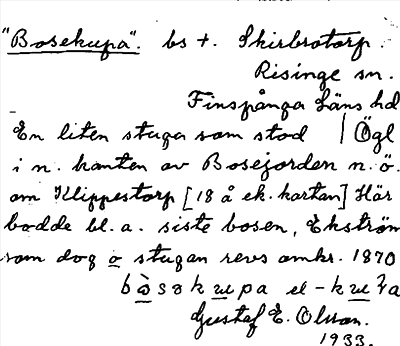 "Bosekupa". bs t. Skirbrotorp.
Risinge sn.
Finspånga Läns hd
En liten stuga som stod | Ögl
i n. kanten av Bosejorden n.ö.
om Klippestorp [18 å ek. kartan] Här
bodde bl. a. siste bosen, Ekström
som dog o stugan revs omkr. 1870
Gustaf E. Olsson.
1933.